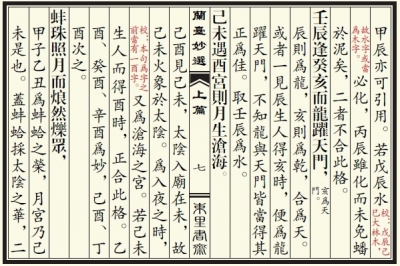 甲辰亦可引用。若戊辰水校：戊辰己巳大林木，
故水字或當為木字。必化，丙辰雖化而未免蟠
於泥矣，二者不合此格。
壬辰逢癸亥而龍躍天門，亥為天門。
辰則為龍，亥則為乾，合為天。
或者一見辰生人得亥時，便為龍
躍天門，不知龍與天門皆當得其
正為佳。取壬辰為水。
己未遇酉宮則月生滄海。
蘭臺妙選
上篇
七
東里書齋
己酉見己未，太陰入廟在未，故
己未火象於太陰。為入夜之時，
校：本句為字之前當有一酉字。又為滄海之宮。若己未
生人而得酉時，正合此格。乙
酉、癸酉、辛酉為妙，己酉、丁
酉次之。
蚌珠照月而烺然爍眾，
甲子乙丑為蚌蛤之榮，月宮乃己
未是也。蓋蚌蛤採太陰之華，二